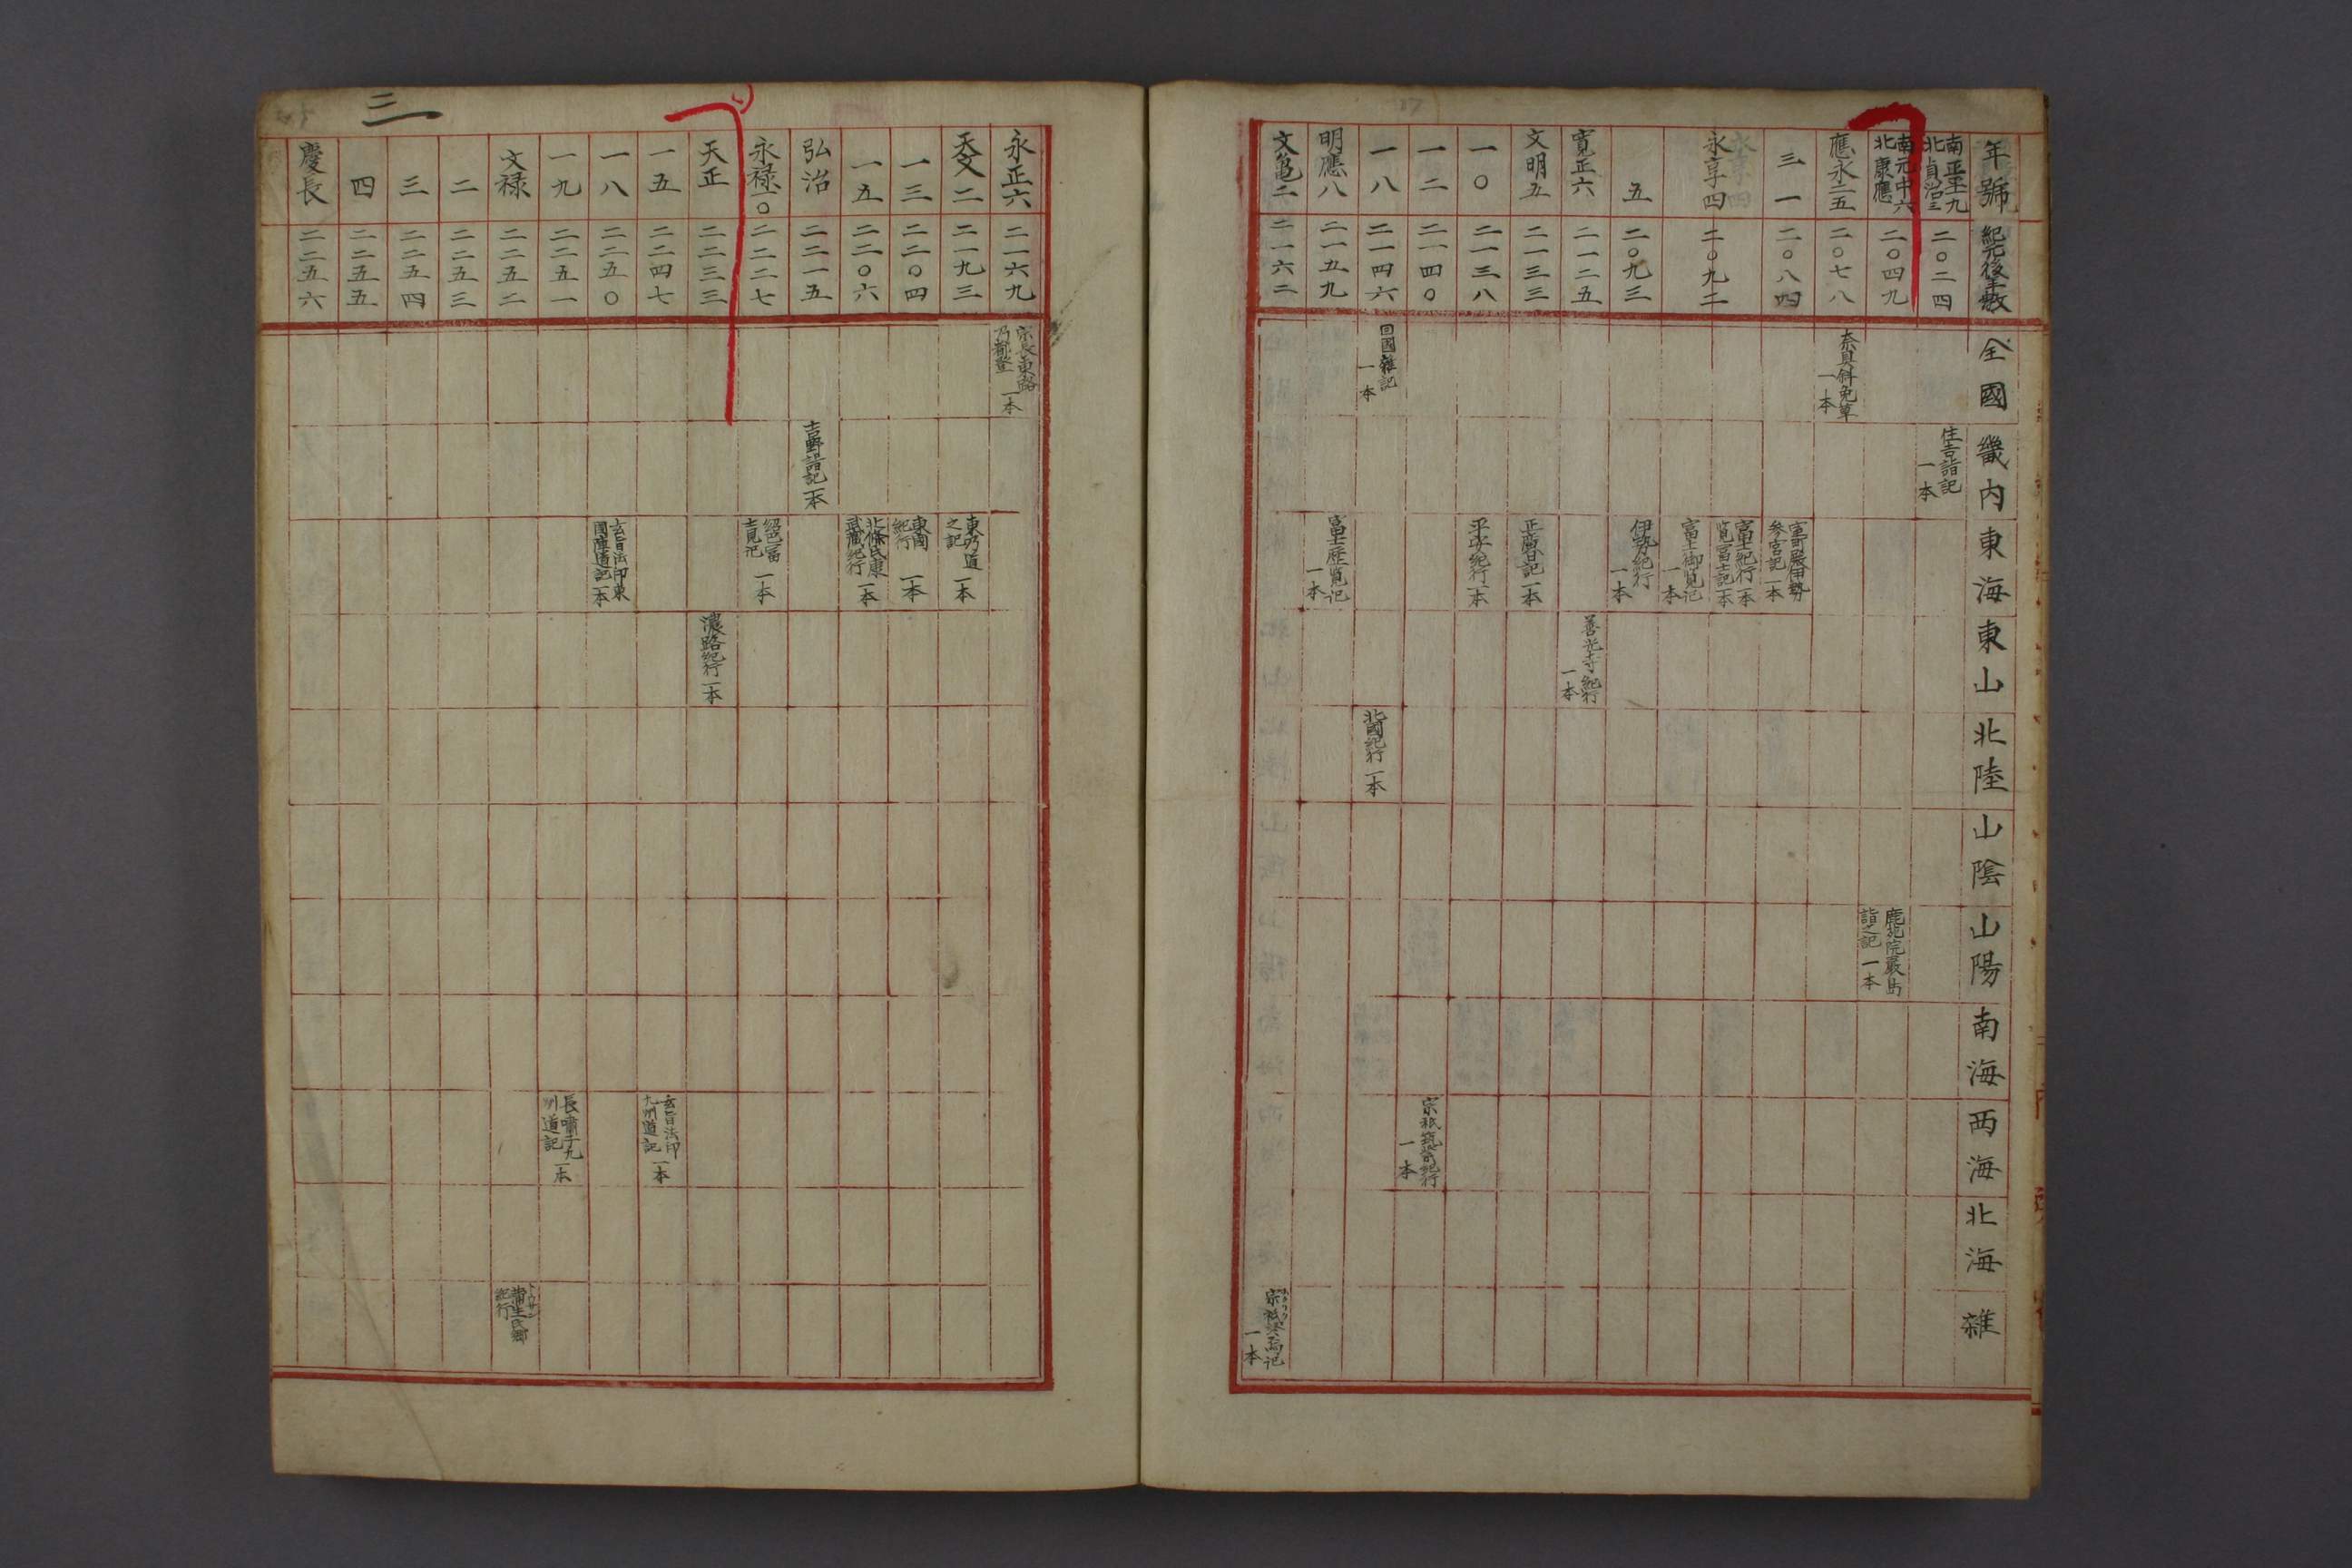 年號
紀元後年數
全國
畿内
東海
東山
北陸
山陰
山陽
南海
西海
北海
雜
南正平九
北貞治三
二〇二四
住吉詣記
一本
南元中六
北康應
二〇四九
鹿苑院嚴島
詣之記 一本
應永二五
二〇七八
一本
三一
二〇八四
室町殿伊勢
參宮記 一本
永享四
二〇九二
富士紀行 一本
覽富士記 一本
富士御覽記
一本
五
二〇九三
伊勢紀行
一本
寛正六
二一二五
善光寺紀行
一本
文明五
二一三三
正廣日記 一本
一〇
二一三八
平安紀行 一本
一二
二一四〇
宗祇筑紫紀行
一本
一八
二一四六
回國雜記
一本
北國紀行 一本
明應八
二一五九
富士歷覽記
一本
文龜二
二一六二
宗祇終焉記
一本
永正六
二一六九
宗長東路
乃都登 一本
天文二
二一九三
東乃道
之記 一本
一三
二二〇四
東國
紀行 一本
一五
二二〇六
北條氏康
武藏紀行 一本
弘治
二二一五
吉野詣記 一本
永禄一〇
二二二七
紹巴富
士見記 一本
天正
二二三三
濃路紀行 一本
一五
二二四七
玄旨法印
九州道記 一本
一八
二二五〇
玄旨法印東
國陣道記 一本
一九
二二五一
長嘯子九
州道記 一本
文禄
二二五二
蒲生氏郷
紀行
二
二二五三
三
二二五四
四
二二五五
慶長
二二五六
三